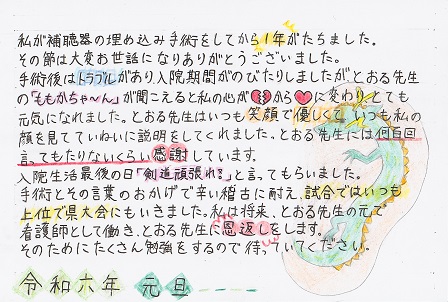 私が補聴器の埋め込み手術をしてから1年がたちました。
その節は大変お世話になりありがとうございました。
手術後はトラブルがあり入院期間がのびたりしましたがとおる先生
の「ももかちゃ〜ん」が聞こえると私の心が💔から❤に変わりとても
元気になれました。とおる先生はいつも笑顔で優しくて、いつも私の
顔を見てていねいに説明をしてくれました。とおる先生には何百回
言ってもたりないくらい感謝しています。
入院生活最後の日「剣道頑張れよ」と言ってもらいました。
手術とその言葉のおかげで辛い稽古に耐え、試合ではいつも
上位で県大会にもいきました。私は将来、とおる先生の元で
看護師として働き、とおる先生に恩返しをします。
そのためにたくさん勉強をするので待っていてください。
令和六年 元旦